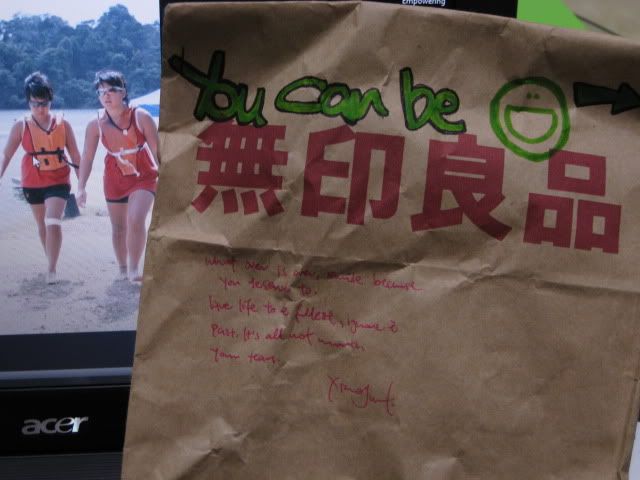 Empowering
You can be
無印良品
What over is over, smile because
you deserve to.
Live life to e fullest, ignore e
Past. It's all not
Your tears.
acer